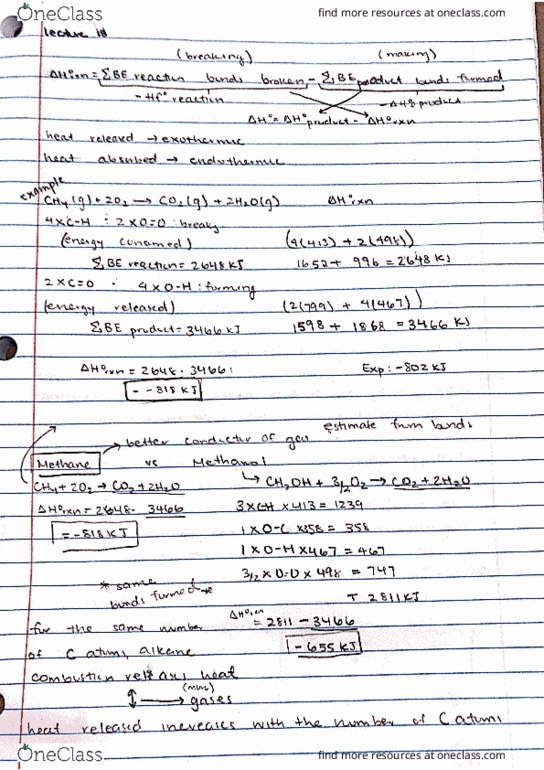 OneClass find more resources at oneclass.com
lecture 18
(breaking) (making)
ΔH°rxn = ΣBE reaction bonds broken - ΣBE product bonds formed
-Hf° reaction -ΔHf product
ΔH° = ΔH°product - ΔH°rxn
heat released → exothermic
heat absorbed → endothermic
example
CH4(g) + 2O2 → CO2(g) + 2H2O(g) ΔH°rxn
4×C-H : 2×O=O : breaks
(energy consumed) (4(413) + 2(498))
ΣBE reaction = 2648 kJ 1652 + 996 = 2648 kJ
2×C=O : 4×O-H : forming
(energy released) (2(799) + 4(467))
ΣBE product = 3466 kJ 1598 + 1868 = 3466 kJ
ΔH°rxn = 2648 - 3466 : Exp: -802 kJ
= -818 kJ
estimate from bonds
→ better conductor of gas
Methane vs Methanol
CH4 + 2O2 → CO2 + 2H2O ↳ CH3OH + 3/2O2 → CO2 + 2H2O
ΔH°rxn = 2648 - 3466 3×CH ×413 = 1239
= -818 kJ 1×O-C ×358 = 358
1×O-H×467 = 467
3/2×O-O×498 = 747
* same bonds formed→ T 2811 kJ
for the same number ΔH°rxn = 2811 - 3466
of C atoms, alkane -655 kJ
combustion heat
(more)
↕ → gases
heat released increases with the number of C atoms
OneClass find more resources at oneclass.com